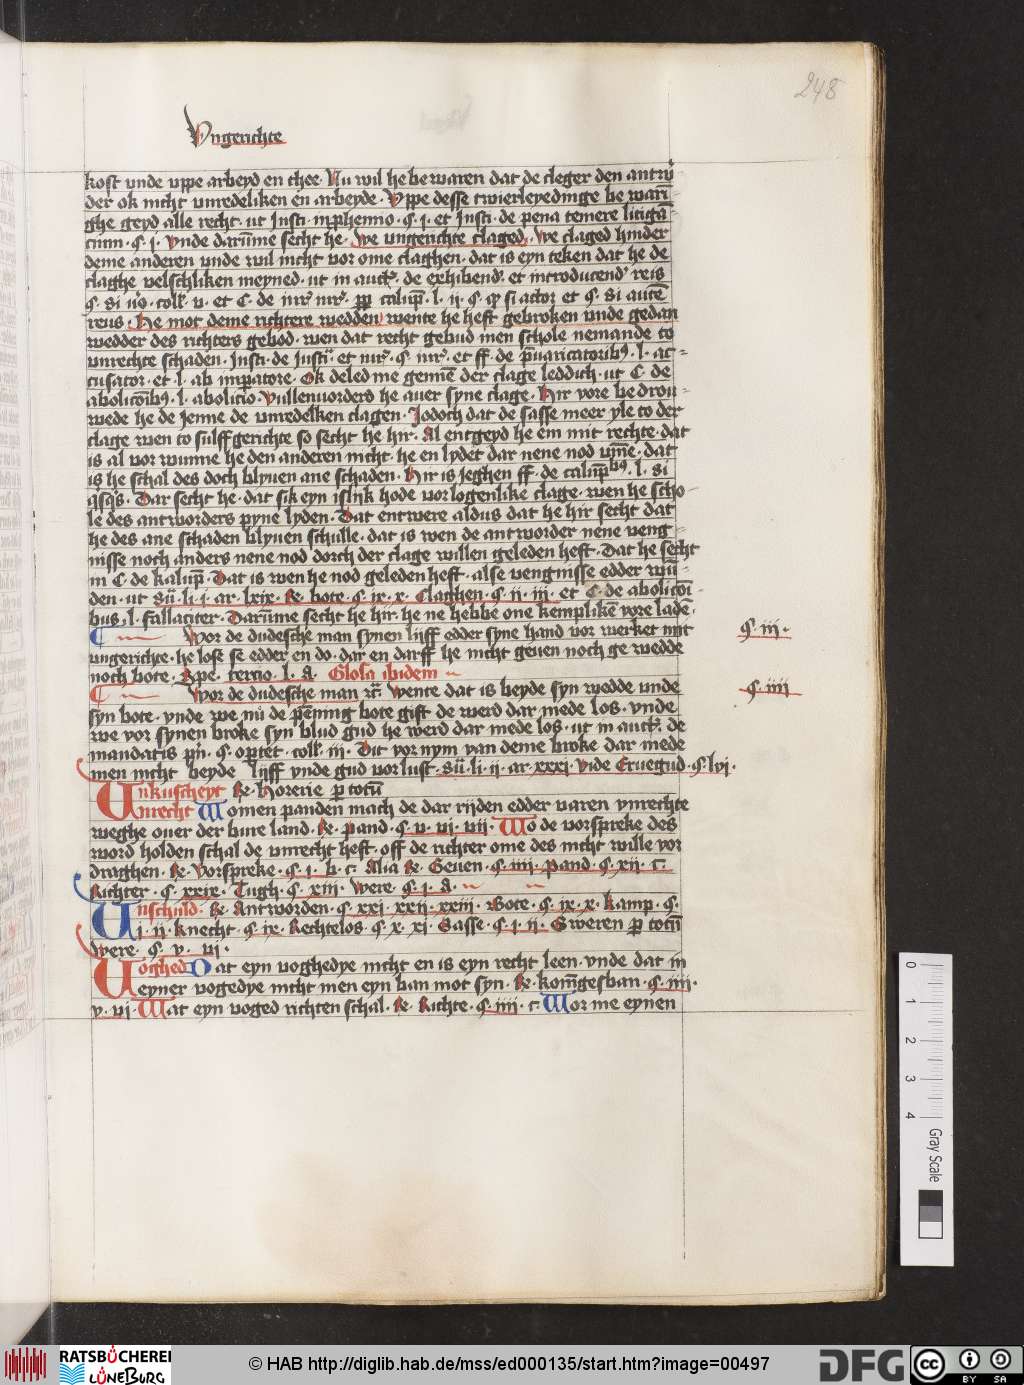 248
Vngerichte
kost vnde vppe arbeyd en thee · Nu wil he be waren dat de cleger den antw̄
der ok nicht vnredeliken en arbeyde · Vppe desse twierleye dinge be warē
ghe geyd alle recht · ut Insti · in prhemio · §. i. et Insti · de pena temere litigā
cium · §. i. Vnde darūme secht he · We vngerichte claged · We claged hinder
deme anderen vnde wil nicht vor ome claghen · dat is eyn teken dat he de
claghe velschliken meyned · ut in auct̉ · de exhibend̉ · et introducend̉ reis
reus · He mot deme richtere wedden wente he heft gebroken vnde gedan
wedder des richters gebod · wen dat recht gebud men schole nemande to
vnrechte schaden · Insti · de Iusti · et iur̉ · §. iur̉ · et ff · de p̄uaricatoribꝰ · l. ac
cusator · et l. ab imp̄atore · Ok deled me genne der clage leddich · ut C. de
abolicōibꝰ · l. abolicio · Vullenuorders he auer syne clage · Hir vore be drou
wede he de Jenne de vnredelken clagen · Jodoch dat de sasse meer yle to der
clage wen to sulff gerichte so secht he hir · Al entgeyd he em mit rechte · dat
is al vor wunne he den anderen nicht · he en lydet dar nene nod vm̄e · dat
is he schal des doch blyuen ane schaden · Hir is jeghen ff · de calūp̄bꝰ · l. si
Dar secht he · dat sik eyn islik hode vor logenlike clage · wen he scho
le des antworders pyne lyden · Dat entwere aldus dat he hir secht dat
he des ane schaden blyuen schulle · dat is wen de antworder nene veng
nisse noch anders nene nod dorch der clage willen geleden heft · Dat he secht
in C. de kalup̄ · Dat is wen he nod geleden heft · alse vengnisse edder wū
den · ut Sū · li. i. ar. lxix · Re. bote · §. ix. x. Claghen · §. ii. iii. et C. de abolicōi
bus · l. fallaciter · Darūme secht he hir · he ne hebbe one kemplikē vore ladē ·
Wor de dudesche man synen lijff edder syne hand vor werket mit
§. iii.
vngerichte · he lose se edder en do · dar en darff he nicht geuen noch ge wedde
noch bote · Rpe. tercio. l. A. Glosa ibidem
Wor de dudesche man r̄c̄ Wente dat is beyde syn wedde vnde
§. iiii
syn bote · vnde we nū de p̄ennig bote gift de werd dar mede los · vnde
we vor synen broke syn blud gud he werd dar mede los · ut in auct̉ · de
mandatis pn̄ · §. optet · coll. iii. Dit vor nym van deme broke dar mede
men nicht beyde lijff vnde gud vor lust · Sū · li. ii. ar. xxxi. Vide Eruegud · §. lvi.
Vnkuscheyt Re. Horerie p̄ totū
Vnrecht Women panden mach de dar rijden edder varen vnrechte
weghe ouer der bure land · Re. pand · §. v. vi. vii. Wo de vorspreke des
word holden schal de vnrecht heft · off de richter ome des nicht wille vor
draghen · Re. Vorspreke · §. i. b. c. Alia Re. Geuen · §. iiii. Pand · §. xii. c.
Richter · §. xxix. Tugh · §. xiii. Were · §. i. A.
Vnschuld · Re. Antworden · §. xxi. xxii. xxiii. Bote · §. ix. x. Kamp · §.
i. ii. knecht · §. ix. Rechtelos · §. x. xi. Sasse · §. i. ii. Sweren p̄ totū
Were · §. v. vi.
Voghed Dat eyn voghedye nicht en is eyn recht leen · vnde dat in
eyner vogedye nicht men eyn ban mot syn · Re. konīgesban · §. iiii.
v. vi. Wat eyn voged richten schal · Re. Richte · §. iiii. c. Wor me eynen
0 1 2 3 4
Gray Scale
RATSBÜCHEREI LÜNEBURG
© HAB http://diglib.hab.de/mss/ed000135/start.htm?image=00497
DFG
cc BY SA